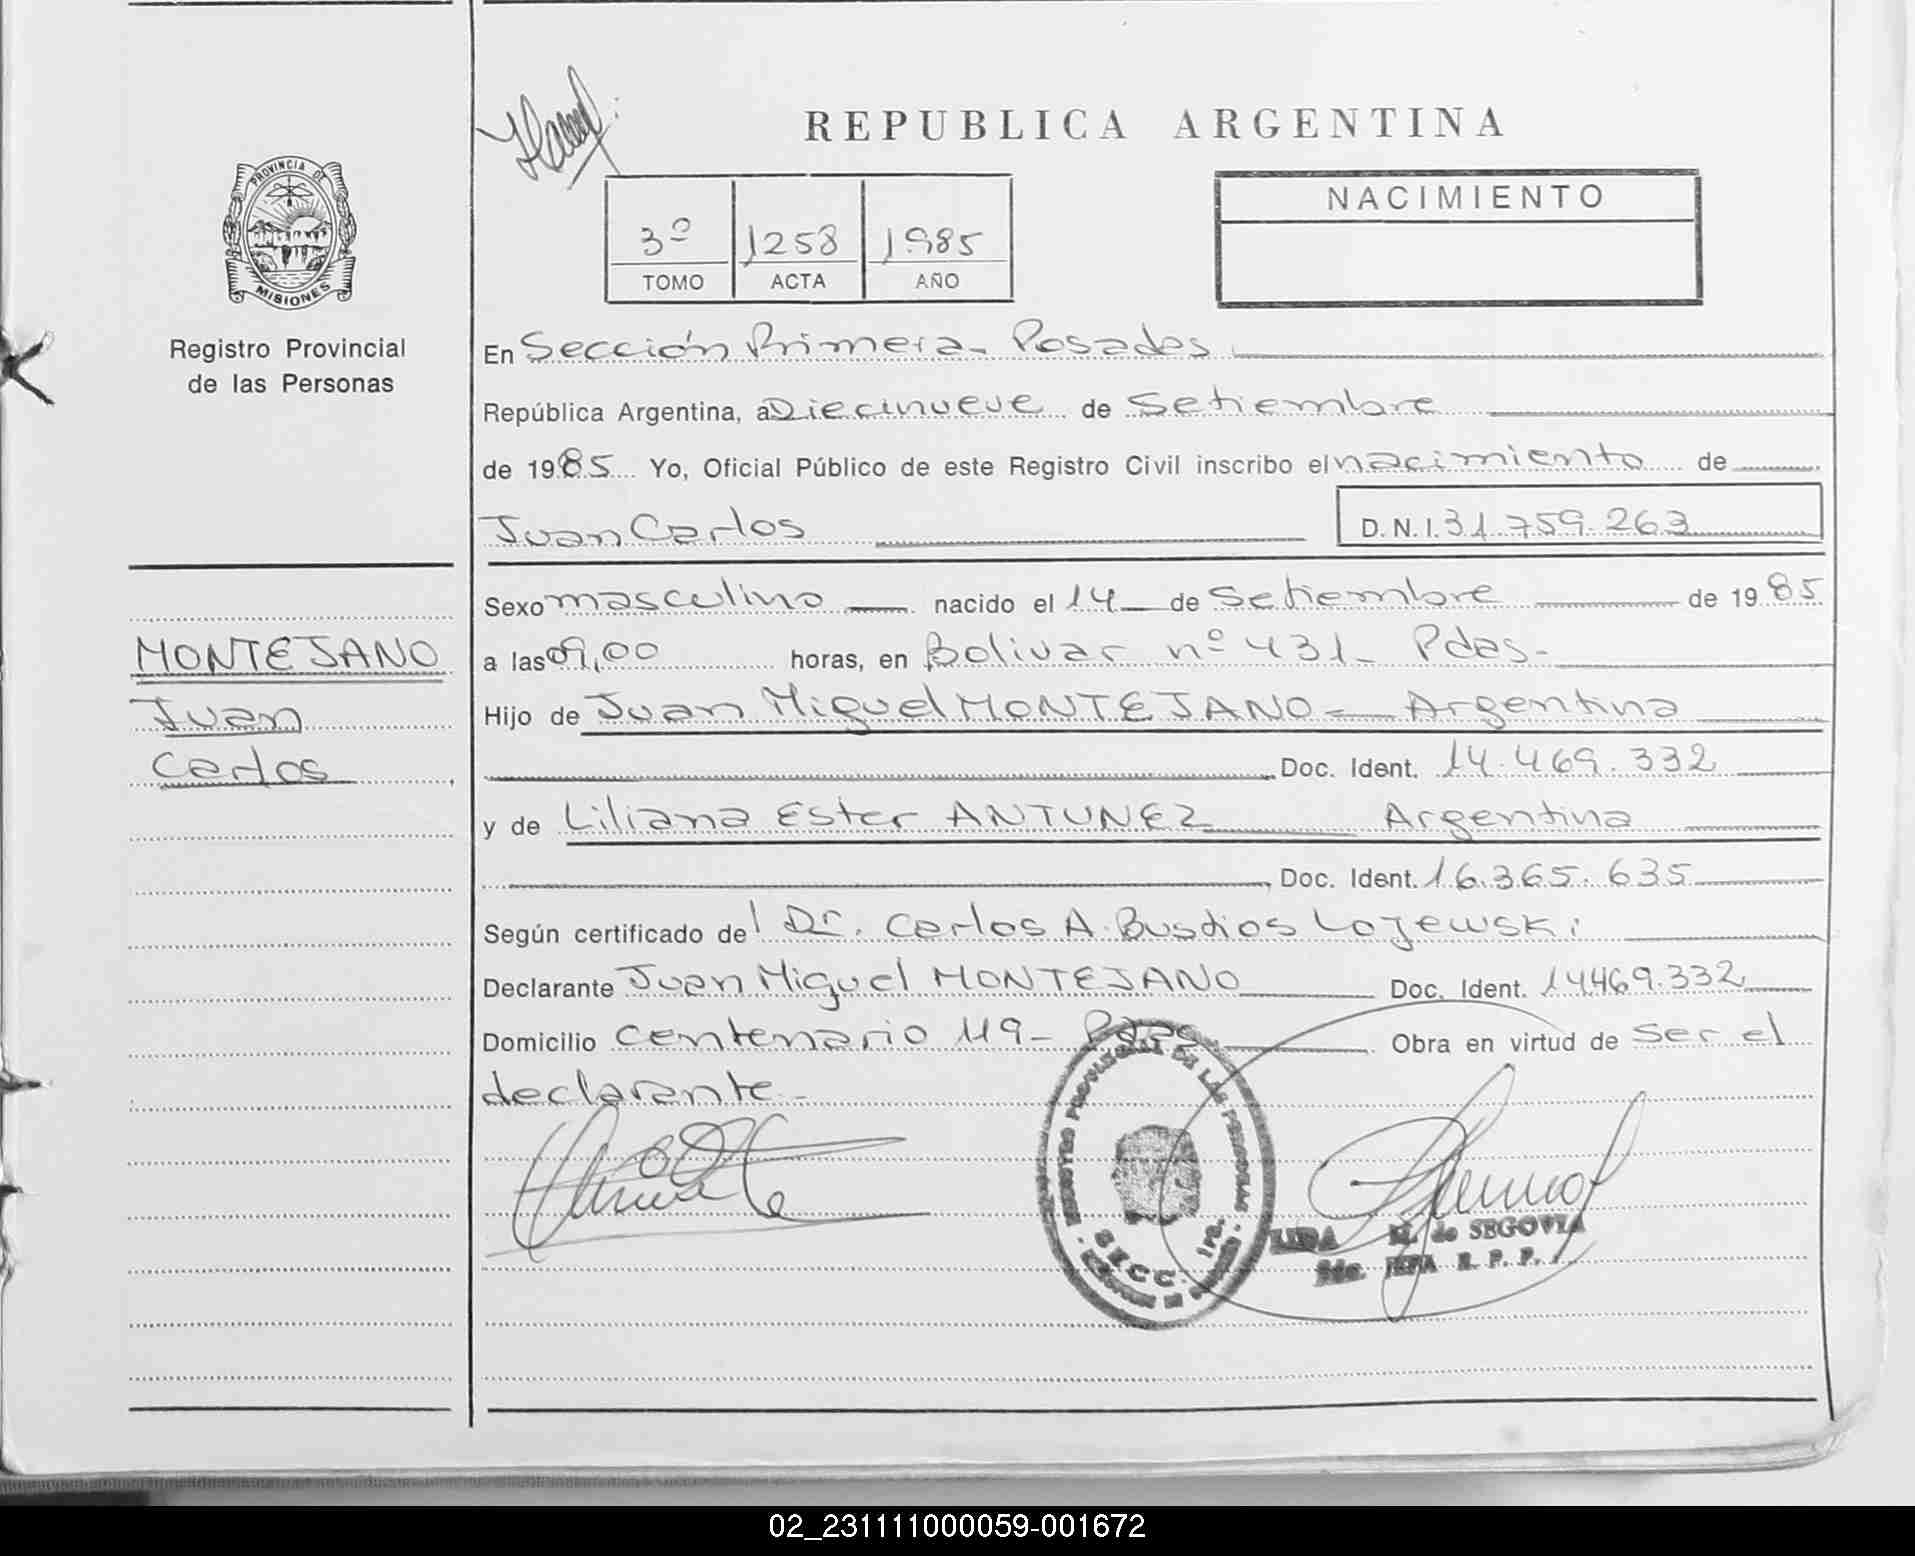 REPUBLICA ARGENTINA
PROVINCIA DE
MISIONES
Registro Provincial
de las Personas
3º 1258 1985
TOMO ACTA AÑO
NACIMIENTO
En Sección Primera- Posadas
República Argentina, a Diecinueve de Setiembre
de 1985 Yo, Oficial Público de este Registro Civil inscribo el nacimiento de
Juan Carlos D.N.I. 31.759.263
Sexo masculino nacido el 14 de Setiembre de 1985
MONTEJANO
Juan
Carlos
a las 09,00 horas, en Bolivar nº 431- Pdas-
Hijo de Juan Miguel MONTEJANO- Argentina
Doc. Ident. 14.469.332
y de Liliana Ester ANTUNEZ Argentina
Doc. Ident. 16.365.635
Según certificado del Dr. Carlos A. Bustios Lojewski
Declarante Juan Miguel MONTEJANO Doc. Ident. 14469.332
Domicilio Centenario 119- Pdas Obra en virtud de ser el
declarante-
REGISTRO PROVINCIAL DE LAS PERSONAS
SECC. 1ra.
LIDA M. de SEGOVIA
2da. JEFA R. P. P.
02_231111000059-001672